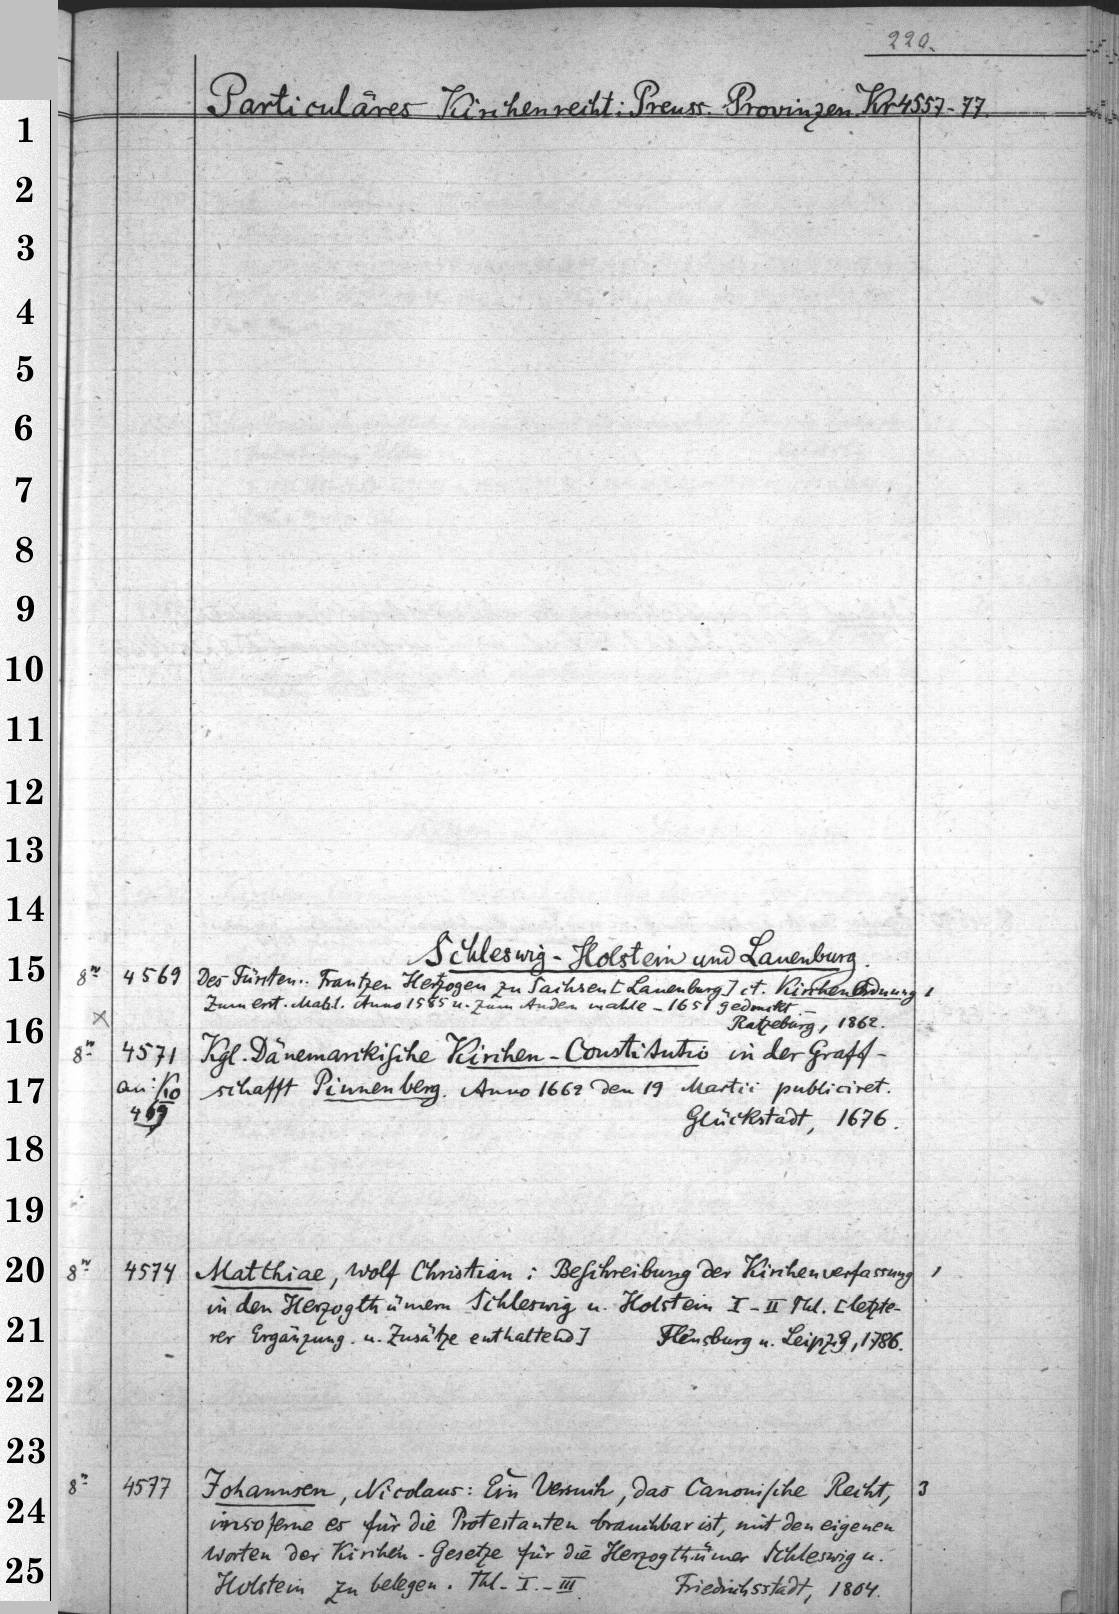 220.
Particuläres Kirchenrecht: Preuss. Provinzen. Kr 4557-77.
1
2
3
4
5
6
7
8
9
10
11
12
13
14
Schleswig-Holstein und Lauenburg.
15
8° 4569 Des Fürsten.. Frantzen Hertzogen zu Sachsen [Lauenburg] ct. KirchenOrdnung 1
Zum erst. Mahl. Anno 1585 u. zum Anden mahle - 1651 gedruckt. -
16 X Ratzeburg, 1862.
8° 4571 Kgl. Dänemarckische Kirchen-Constitutio in der Graff-
17 an: Ko schafft Pinnenberg. Anno 1662 den 19 Martii publiciret.
469 Glückstadt, 1676.
18
19
20 8° 4574 Matthiae, Wolf Christian: Beschreibung der Kirchenverfassung 1
in den Herzogthümern Schleswig u. Holstein I-II Thl. [letzte-
21 rer Ergänzung. u. Zusätze enthaltend] Flensburg u. Leipzig, 1786.
22
23
8° 4577 Johannsen, Nicolaus: Ein Versuch, das Canonische Recht, 3
24 insoferne es für die Protestanten brauchbar ist, mit den eigenen
Worten der Kirchen-Gesetze für die Herzogthümer Schleswig u.
25 Holstein zu belegen. Thl. I.-III Friedrichsstadt, 1804.